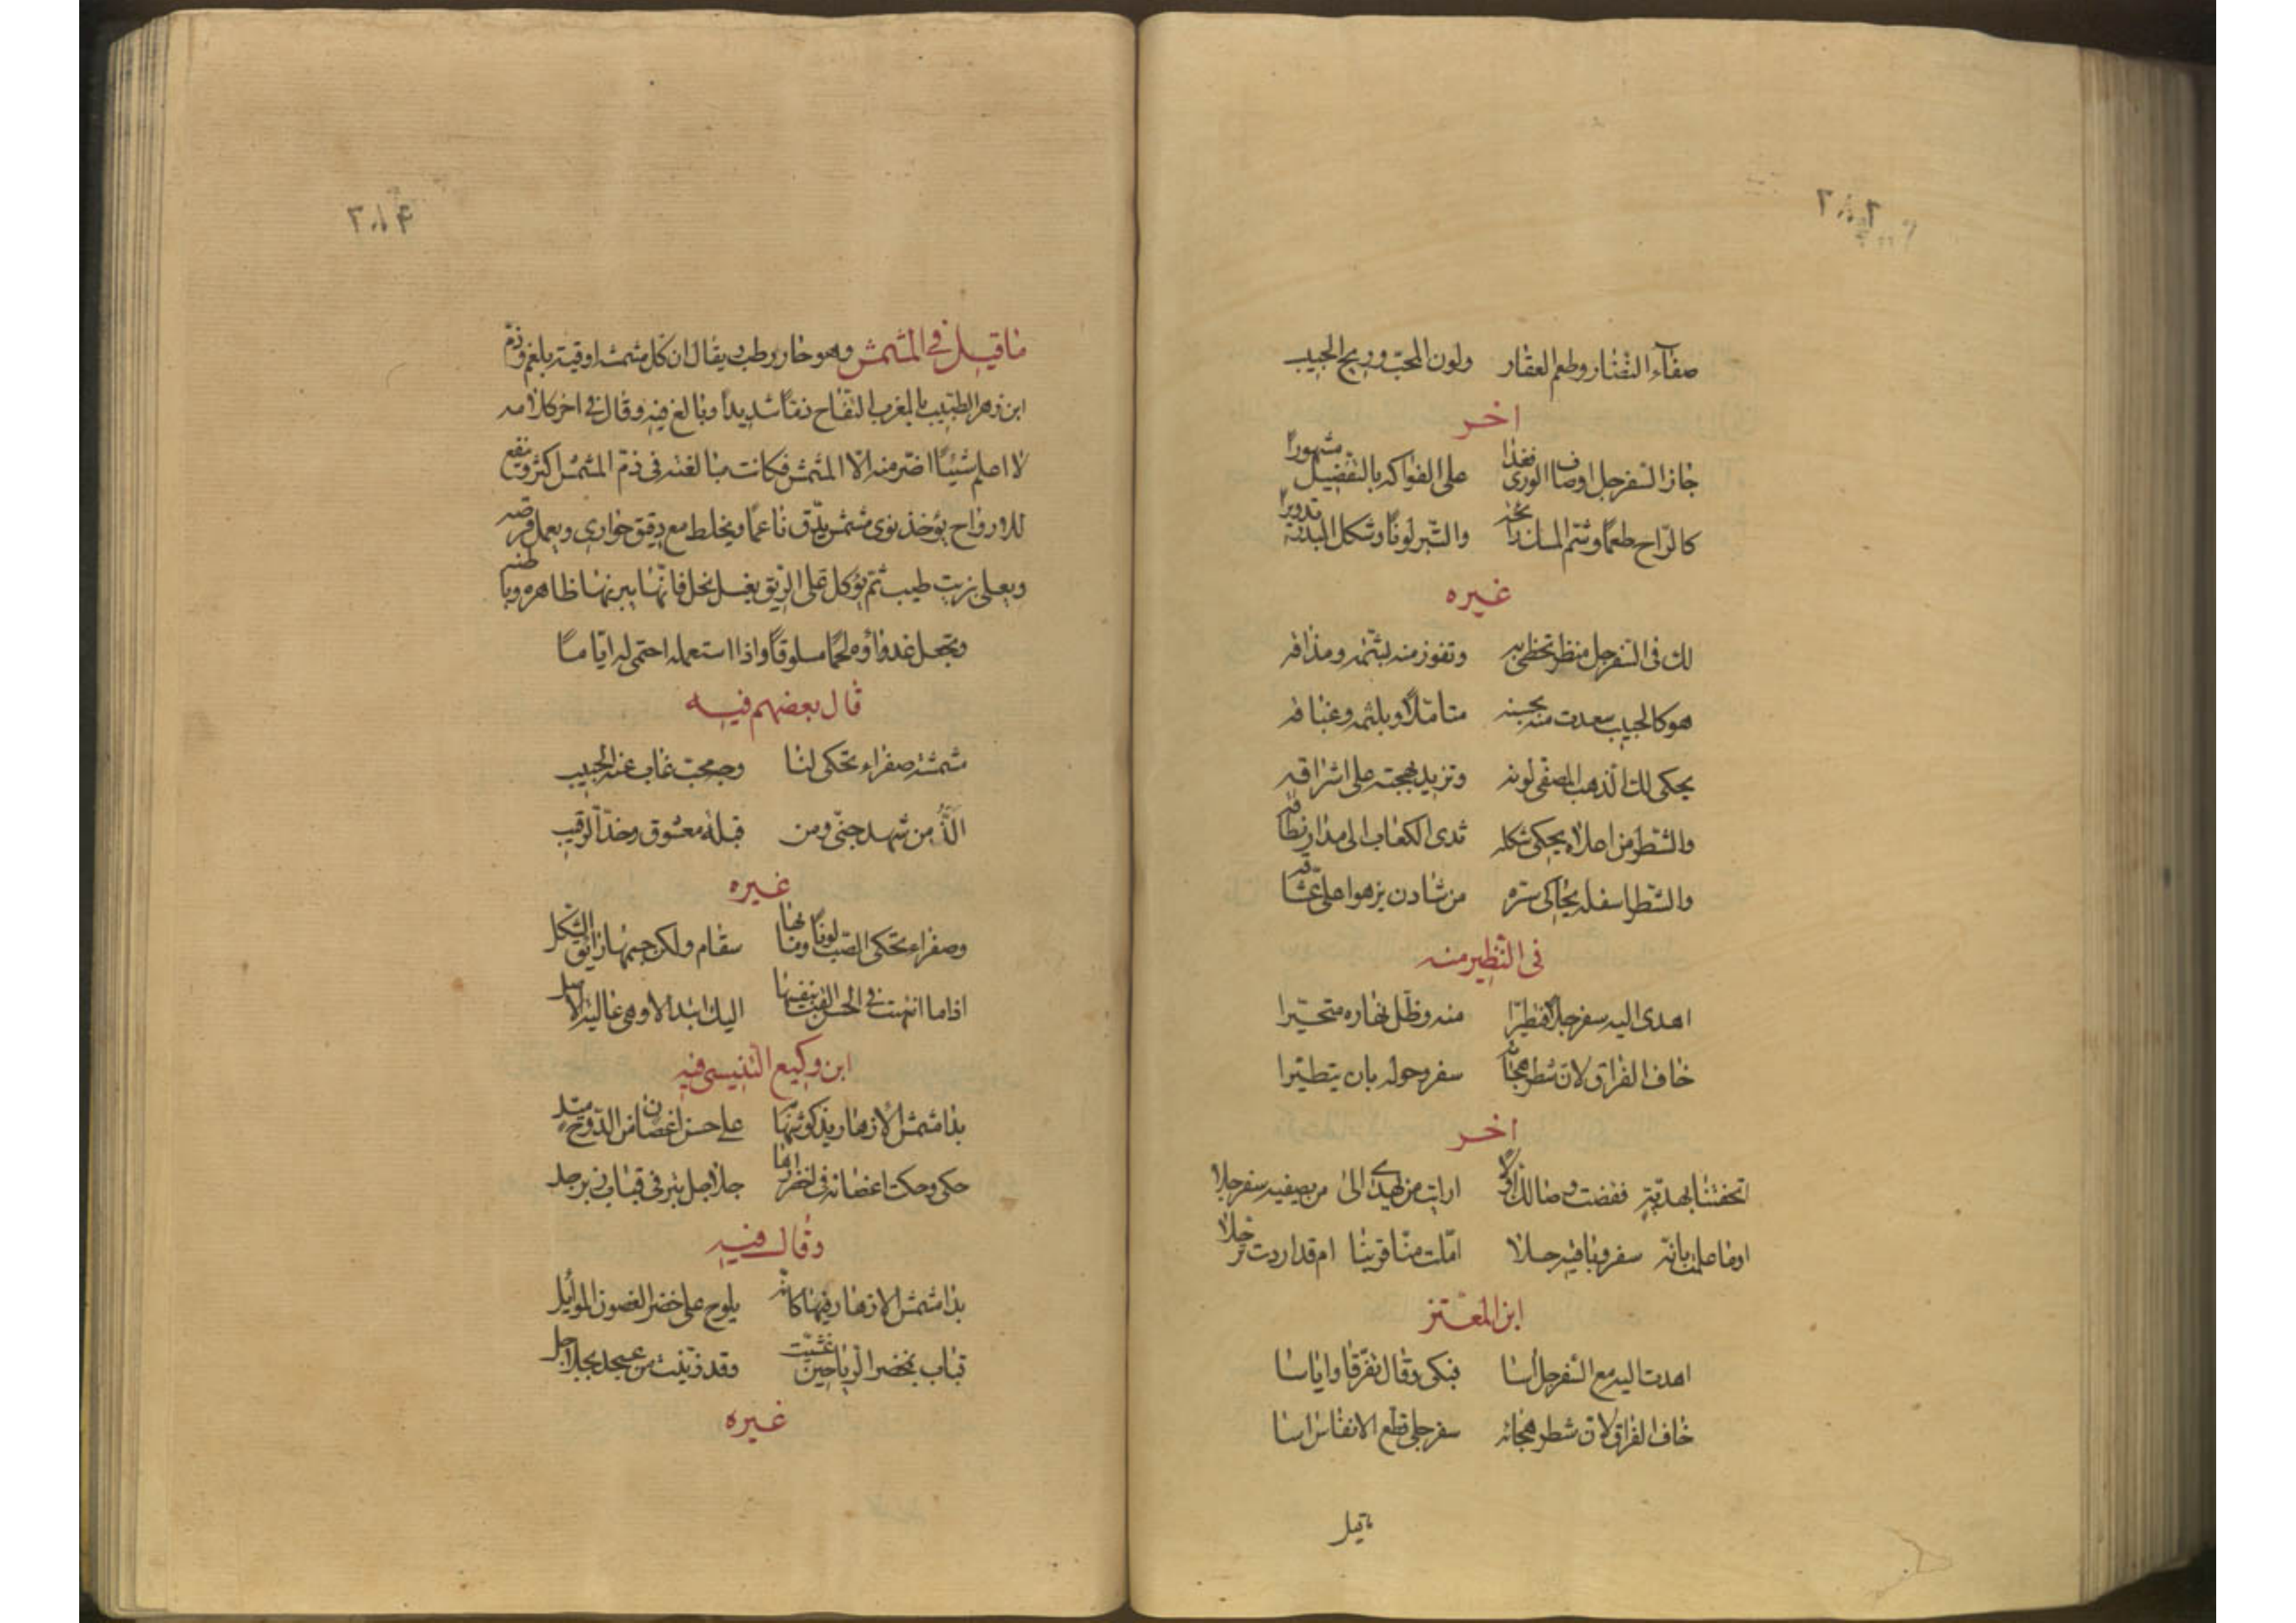 صفآء النضار وطعم العقار ولون المحبّ وريح الحبيب
اخر
حاز السفرجل اوصاف الورى فغدا على الفواكه بالتفضيل مشهورا
كالرّاح طعمًا وشم المسك رائحة والتّبر لونًا وشكل البدر تدويرا
غيره
لك فى السفرجل منظر تحظى به وتفوز منه بشمّه ومذاقه
هو كالحبيب سعدت منه بحسنه متامّلًا وبلثمه وعناقه
يحكى لك الذهب المصفّى لونه وتزيد بهجته على اشراقه
والشطر من اعلاه يحكى شكله ثدى الكعاب الى مدار نطاقه
والشطر اسفله يحاكى سرّه من شادن يزهوا على عشّاقه
فى التطير منه
اهدى اليه سفرجلًا فتطيّرا منه وظلّ نهاره متحيّرا
خاف الفراق لان شطر هجائه سفر وحق له بان يتطيّرا
اخر
اتحفتنا بهديّة ففضت وصالك اوّلا ارايت من يهدى الى من يصفيه سفرجلا
اوما علمت بانّه سفر وباقيه جلا املت منّا قربنا ام قد اردت ترحّلا
ابن المعتز
اهدت اليه مع السفرجل اسا فبكى وقال تفرّقا واياسا
خاف الفراق لان شطر هجائه سفر جلى قطع الانفاس اسا
ماقيل
٢٨٤
ما قيل فى المشمش وهو حار رطب ويقال ان كل مشمشه اوقية بلغم وذم
ابن زهر الطبيب بالمغرب التفاح ذمّا شديدًا وبالغ فيه وقال فى اخر كلامه
لا اعلم شيئًا اضر منه الا المشمش فكانت مبالغته فى ذمّ المشمش اكثر وينفع
للارواح يؤخذ نوى مشمش يدّق ناعمًا ويخلط مع دقيق حوارى ويعمل قرصه
ويعلى بزيت طيب ثمّ يؤكل على الريق بعسل نحل فانّها يبرئها ظاهره وباطنه
ويجعل غداؤه لحمًا مسلوقًا واذا استعمله احتمى له ايّامًا
قال بعضهم فيه
مشمشة صفراء تحكى لنا وجه محبّ غاب عنه الحبيب
الذّ من شهد جنّى ومن قبلة معشوق وخدّ الرقيب
غيره
وصفراء تحكى الصّب لونًا وما بها سقام ولكن جسمها رائق الشكل
اذا ما انتهت فى الحسن القت بنفسها اليك ابتدالا وهى غالية الاصل
ابن وكيع التنيسى فيه
بدا مشمش الازهار يذكو شهابها على حسن اغصان من الدّوح ميّد
حكى وحكت اغصانه فى اخضرارها جلاجل تبر فى قباب زبرجد
وقال فيه
بدا مشمش الازهار فيها كانّه يلوح على خضر الغصون الموايل
قباب بخضر الرياحين غشّيت وقد زيّنت من عسجد بجلاجل
غيره